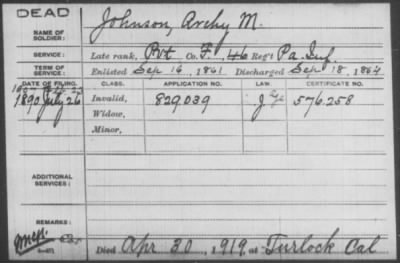 DEAD
NAME OF SOLDIER: Johnson, Archy M.
SERVICE: Late rank, Pvt Co. F, 46 Reg't Pa. Inf.
TERM OF SERVICE: Enlisted Sep 16, 1861 Discharged Sep 18, 1864
DATE OF FILING. CLASS. APPLICATION NO. LAW. CERTIFICATE NO.
1890 July 26 Invalid, 829,039 576.258
Widow,
Minor,
ADDITIONAL SERVICES:
REMARKS:
Died Apr 30, 1919, at Turlock Cal